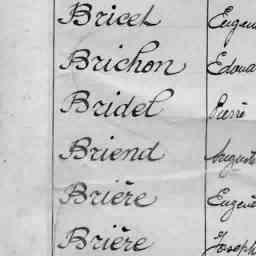 Bricet Eugène
Brichon Edoua
Bridel Pierre
Briend Auguste
Brière Eugène
Brière Joseph